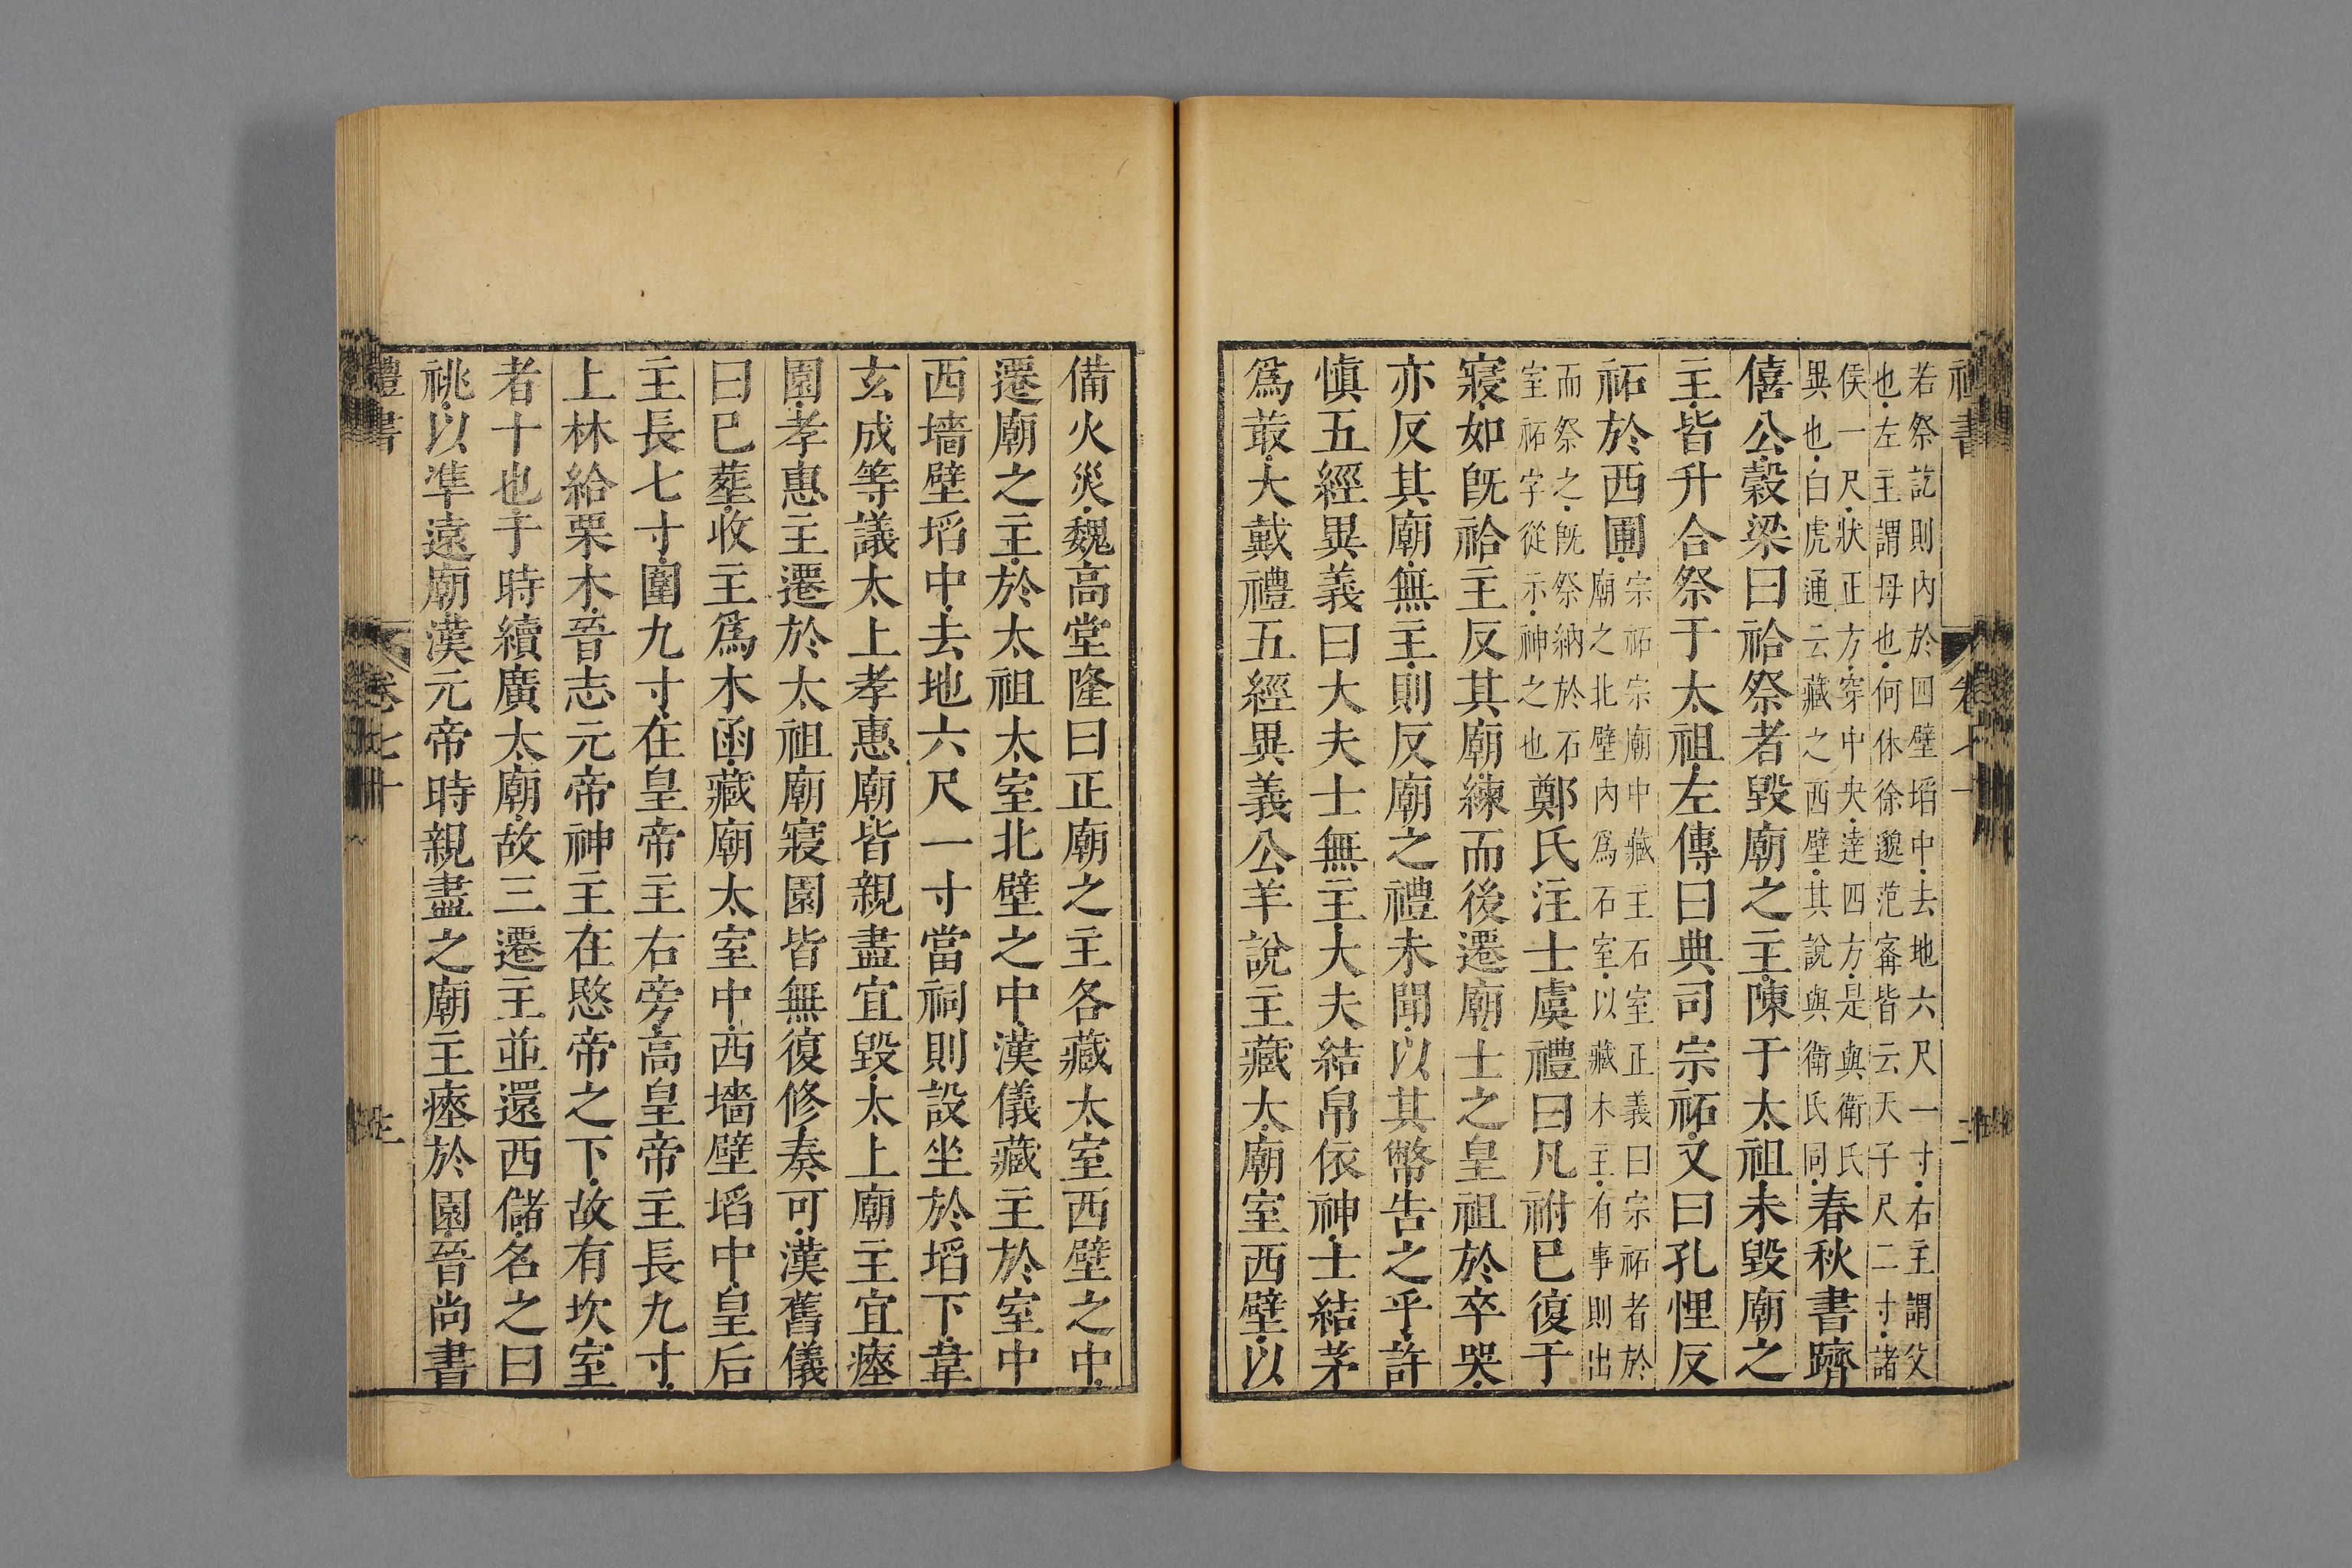 禮書
卷七十
二
若祭訖則內於四壁埳中去地六尺一寸右主謂父
也左主謂母也何休徐邈范甯皆云天子尺二寸諸
侯一尺狀正方穿中央達四方是與衛氏
異也白虎通云藏之西壁其說與衛氏同春秋書躋
僖公穀梁曰祫祭者毀廟之主陳于太祖未毀廟之
主皆升合祭于太祖左傳曰典司宗祏又曰孔悝反
祏於西圃宗祏宗廟中藏主石室正義曰宗祏者於
廟之北壁內爲石室以藏木主有事則出
而祭之旣祭納於石
室祏字從示神之也鄭氏注士虞禮曰凡祔已復于
寢如旣祫主反其廟練而後遷廟士之皇祖於卒哭
亦反其廟無主則反廟之禮未聞以其幣告之乎許
愼五經異義曰大夫士無主大夫結帛依神士結茅
爲菆大戴禮五經異義公羊說主藏太廟室西壁以
備火災魏高堂隆曰正廟之主各藏太室西壁之中
遷廟之主於太祖太室北壁之中漢儀藏主於室中
西墻壁埳中去地六尺一寸當祠則設坐於埳下韋
玄成等議太上孝惠廟皆親盡宜毀太上廟主宜瘞
園孝惠主遷於太祖廟寢園皆無復修奏可漢舊儀
曰已葬收主爲木函藏廟太室中西墻壁埳中皇后
主長七寸圍九寸在皇帝主右旁高皇帝主長九寸
上林給栗木晉志元帝神主在愍帝之下故有坎室
者十也于時續廣太廟故三遷主並還西儲名之曰
祧以準遠廟漢元帝時親盡之廟主瘞於園晉尚書
禮書
卷七十
三